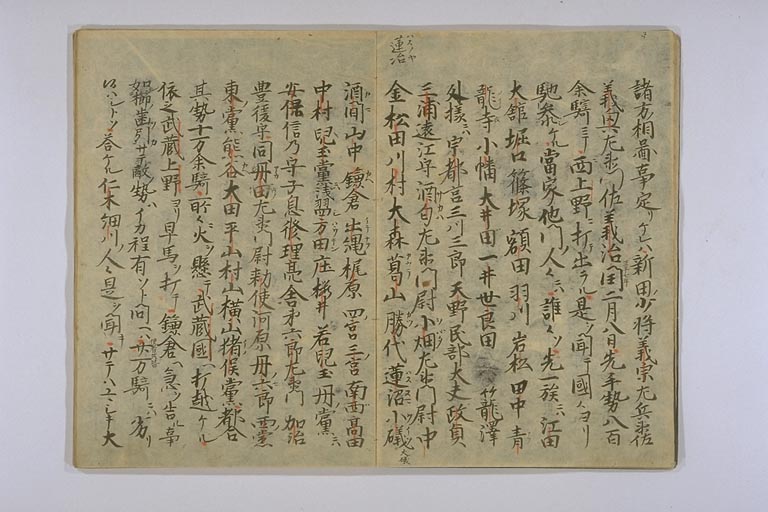 諸方相図事定リケレハ新田少将義宗左兵衛佐
義興左衛門佐義治閏二月八日先手勢八百
余騎ニテ西上野ニ打出ラル是ヲ聞テ國々ヨリ
馳参ケル當家他門ノ人々ニハ誰々ソ先一族ニハ江田
大舘堀口篠塚額田羽川岩松田中青
龍寺小幡大井田一井世良田 籠澤
外様ニハ宇都宮三川三郎天野民部大夫政貞
三浦遠江守酒匂左衛門尉小畑左衛門尉中
金松田川村大森葛山勝代蓮沼小礒
大磯
蓮沼
酒間山中鎌倉出縄梶原四宮三宮南西高田
中村兒玉黨浅羽方田庄桜井若兒玉丹黨ニハ
安保信乃守子息修理亮舎弟六郎左衛門加治
豊後守同丹内左衛門尉勅使河原丹六郎黨
東黨熊谷大田平山村山横山猪俣黨都合
其勢十万余騎所々ニ火ヲ懸テ武蔵國ヘ打越ケル
依之武蔵上野ヨリ早馬ヲ打テ鎌倉ヘ急ヲ告ル事
如櫛歯引サテ敵勢ハイカ程有ソト問ヘハ廿万騎ニハ劣リ
候ハシトソ答ケル仁木細川ノ人々是ヲ聞テサテハユヽシキ大